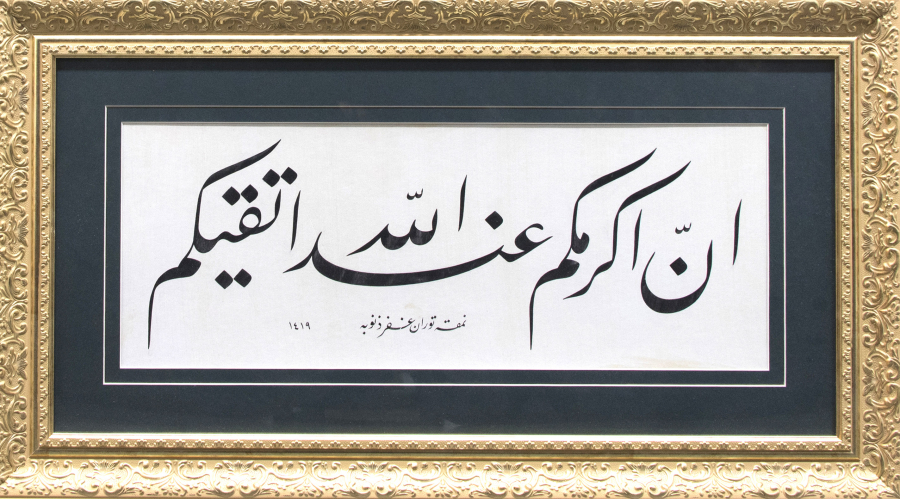 انّ اكرمكم عند اللّه اتقيكم
نمقه توران غفر ذنوبه ١٤١٩